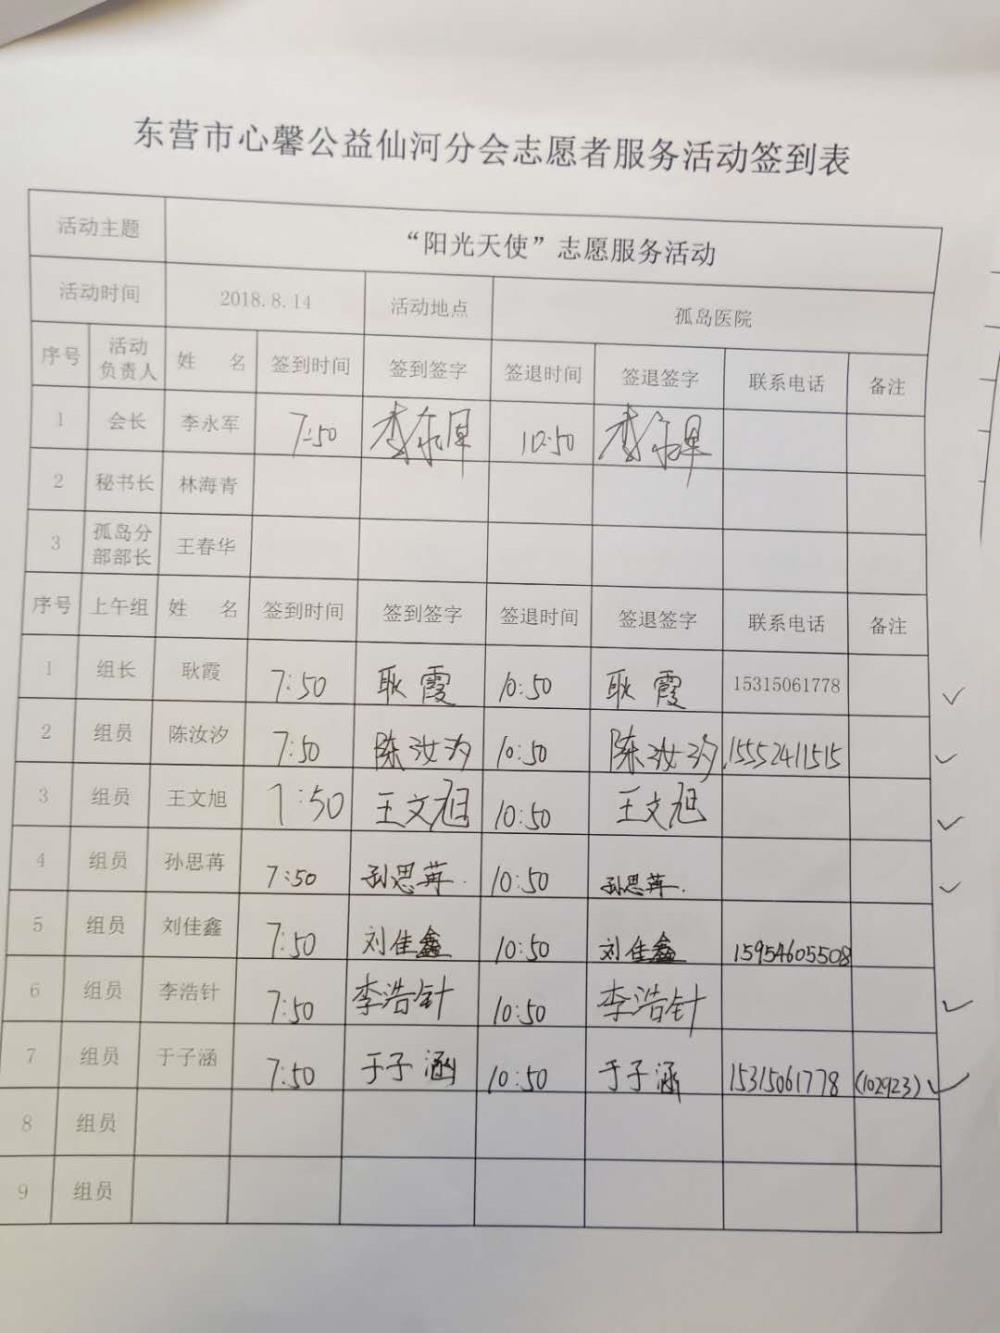 东营市心馨公益仙河分会志愿者服务活动签到表
活动主题 “阳光天使”志愿服务活动
活动时间 2018.8.14 活动地点 孤岛医院
序号 活动负责人 姓 名 签到时间 签到签字 签退时间 签退签字 联系电话 备注
1 会长 李永军 7:50 李永军 10:50 李永军
2 秘书长 林海青
3 孤岛分部部长 王春华
序号 上午组 姓 名 签到时间 签到签字 签退时间 签退签字 联系电话 备注
1 组长 耿霞 7:50 耿霞 10:50 耿霞 15315061778
2 组员 陈汝汐 7:50 陈汝汐 10:50 陈汝汐 15552411515
3 组员 王文旭 7:50 王文旭 10:50 王文旭
4 组员 孙思苒 7:50 孙思苒. 10:50 孙思苒.
5 组员 刘佳鑫 7:50 刘佳鑫 10:50 刘佳鑫 15954605508
6 组员 李浩针 7:50 李浩针 10:50 李浩针
7 组员 于子涵 7:50 于子涵 10:50 于子涵 15315061778 (102923)
8 组员
9 组员